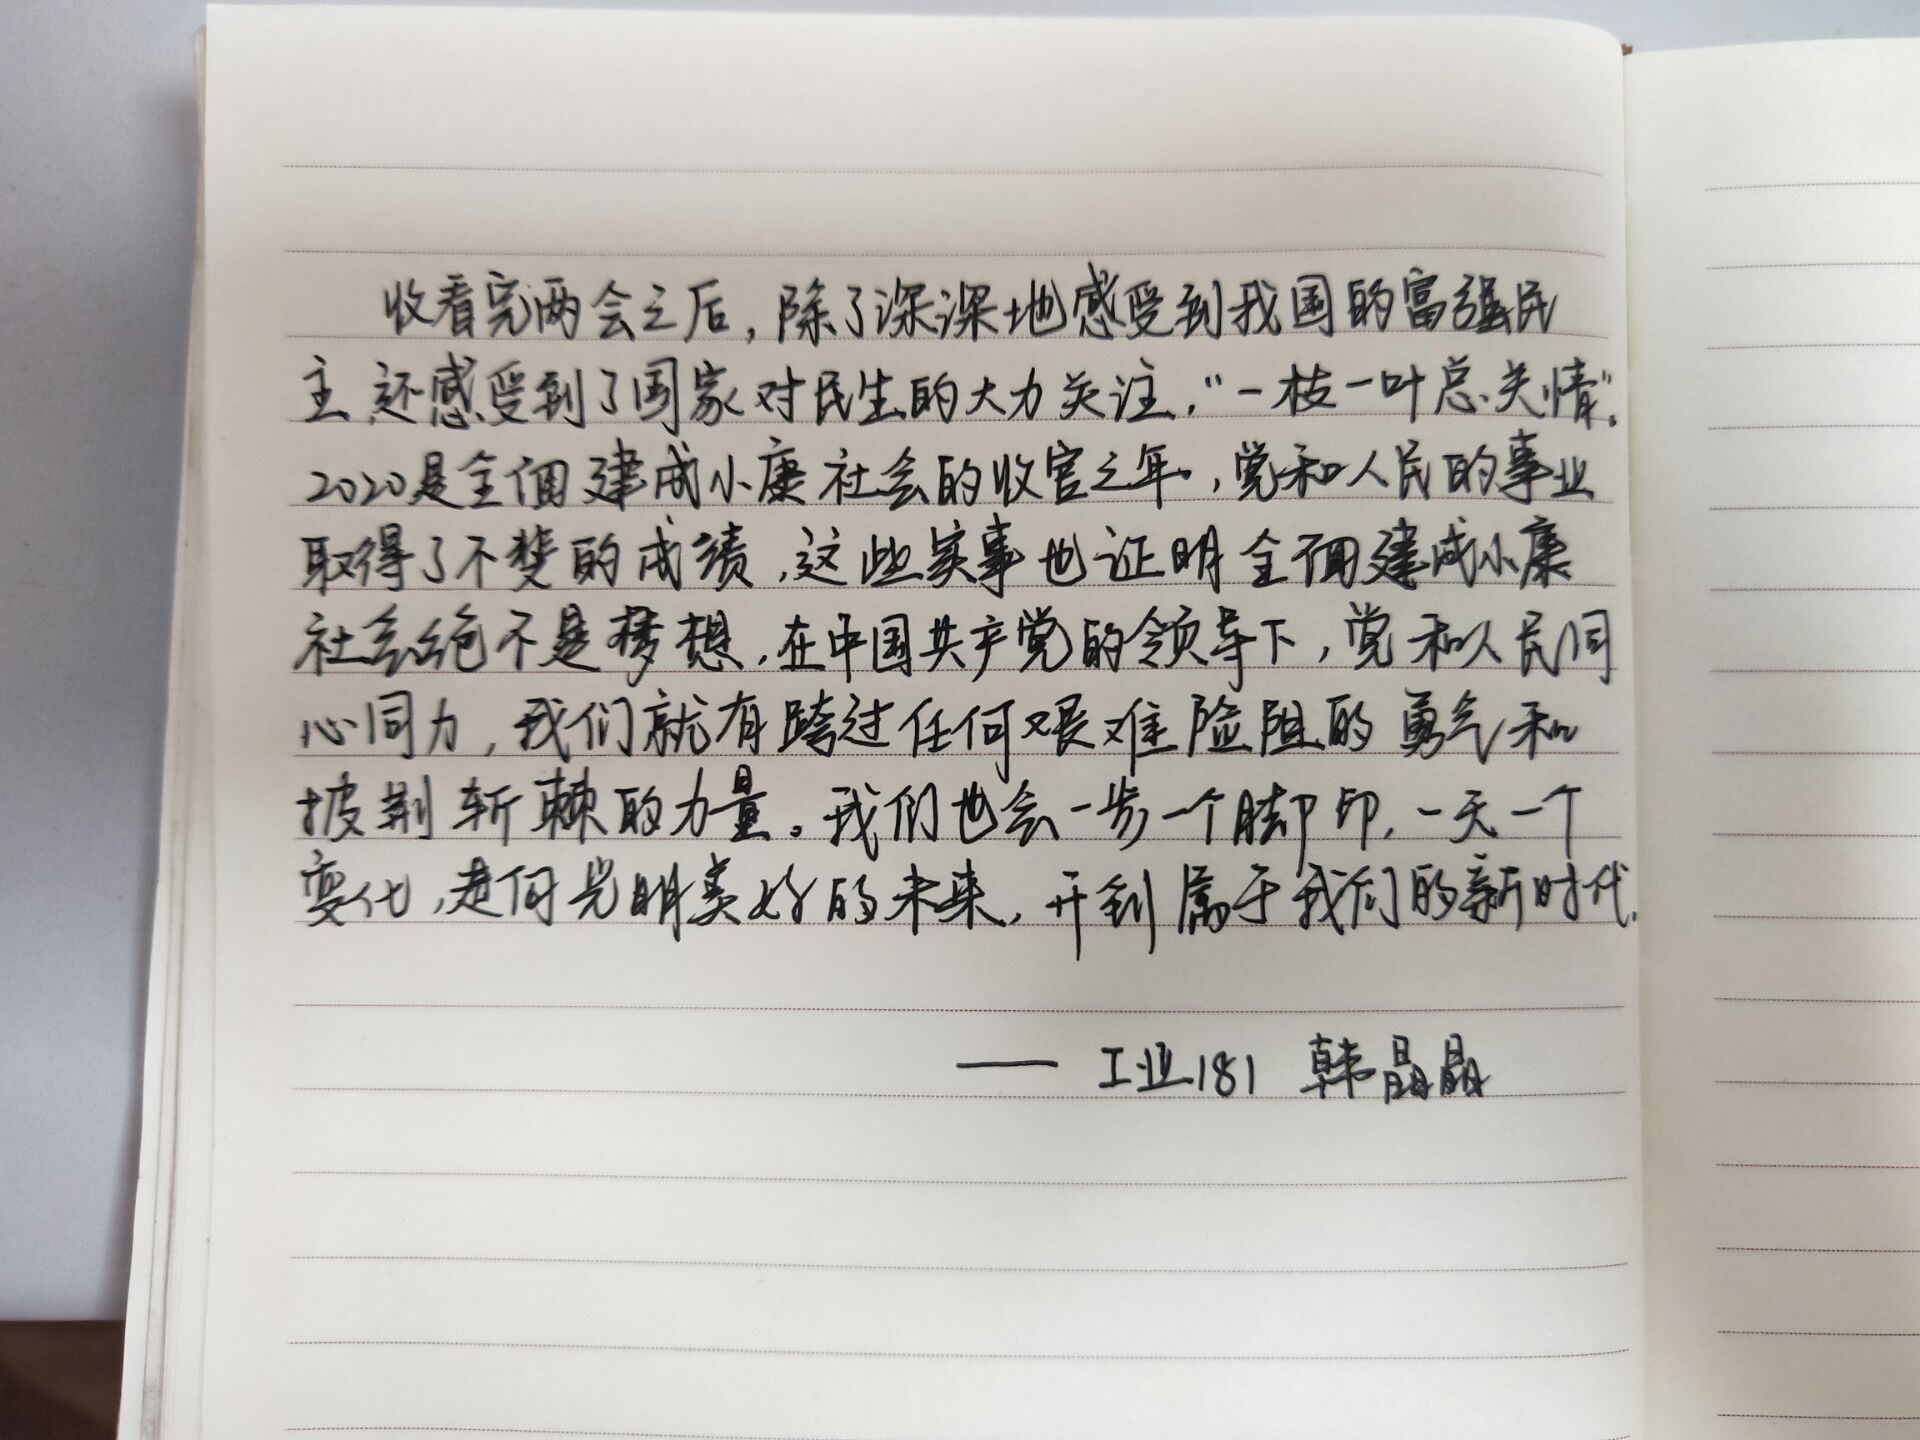 收看完两会之后,除了深深地感受到我国的富强民
主,还感受到了国家对民生的大力关注,“一枝一叶总关情”。
2020是全面建成小康社会的收官之年,党和人民的事业
取得了不斐的成绩,这些实事也证明全面建成小康
社会绝不是梦想,在中国共产党的领导下,党和人民同
心同力,我们就有跨过任何艰难险阻的勇气和
披荆斩棘的力量。我们也会一步一个脚印,一天一个
变化,走向光明美好的未来,开创属于我们的新时代.
—— 工业181 韩晶晶